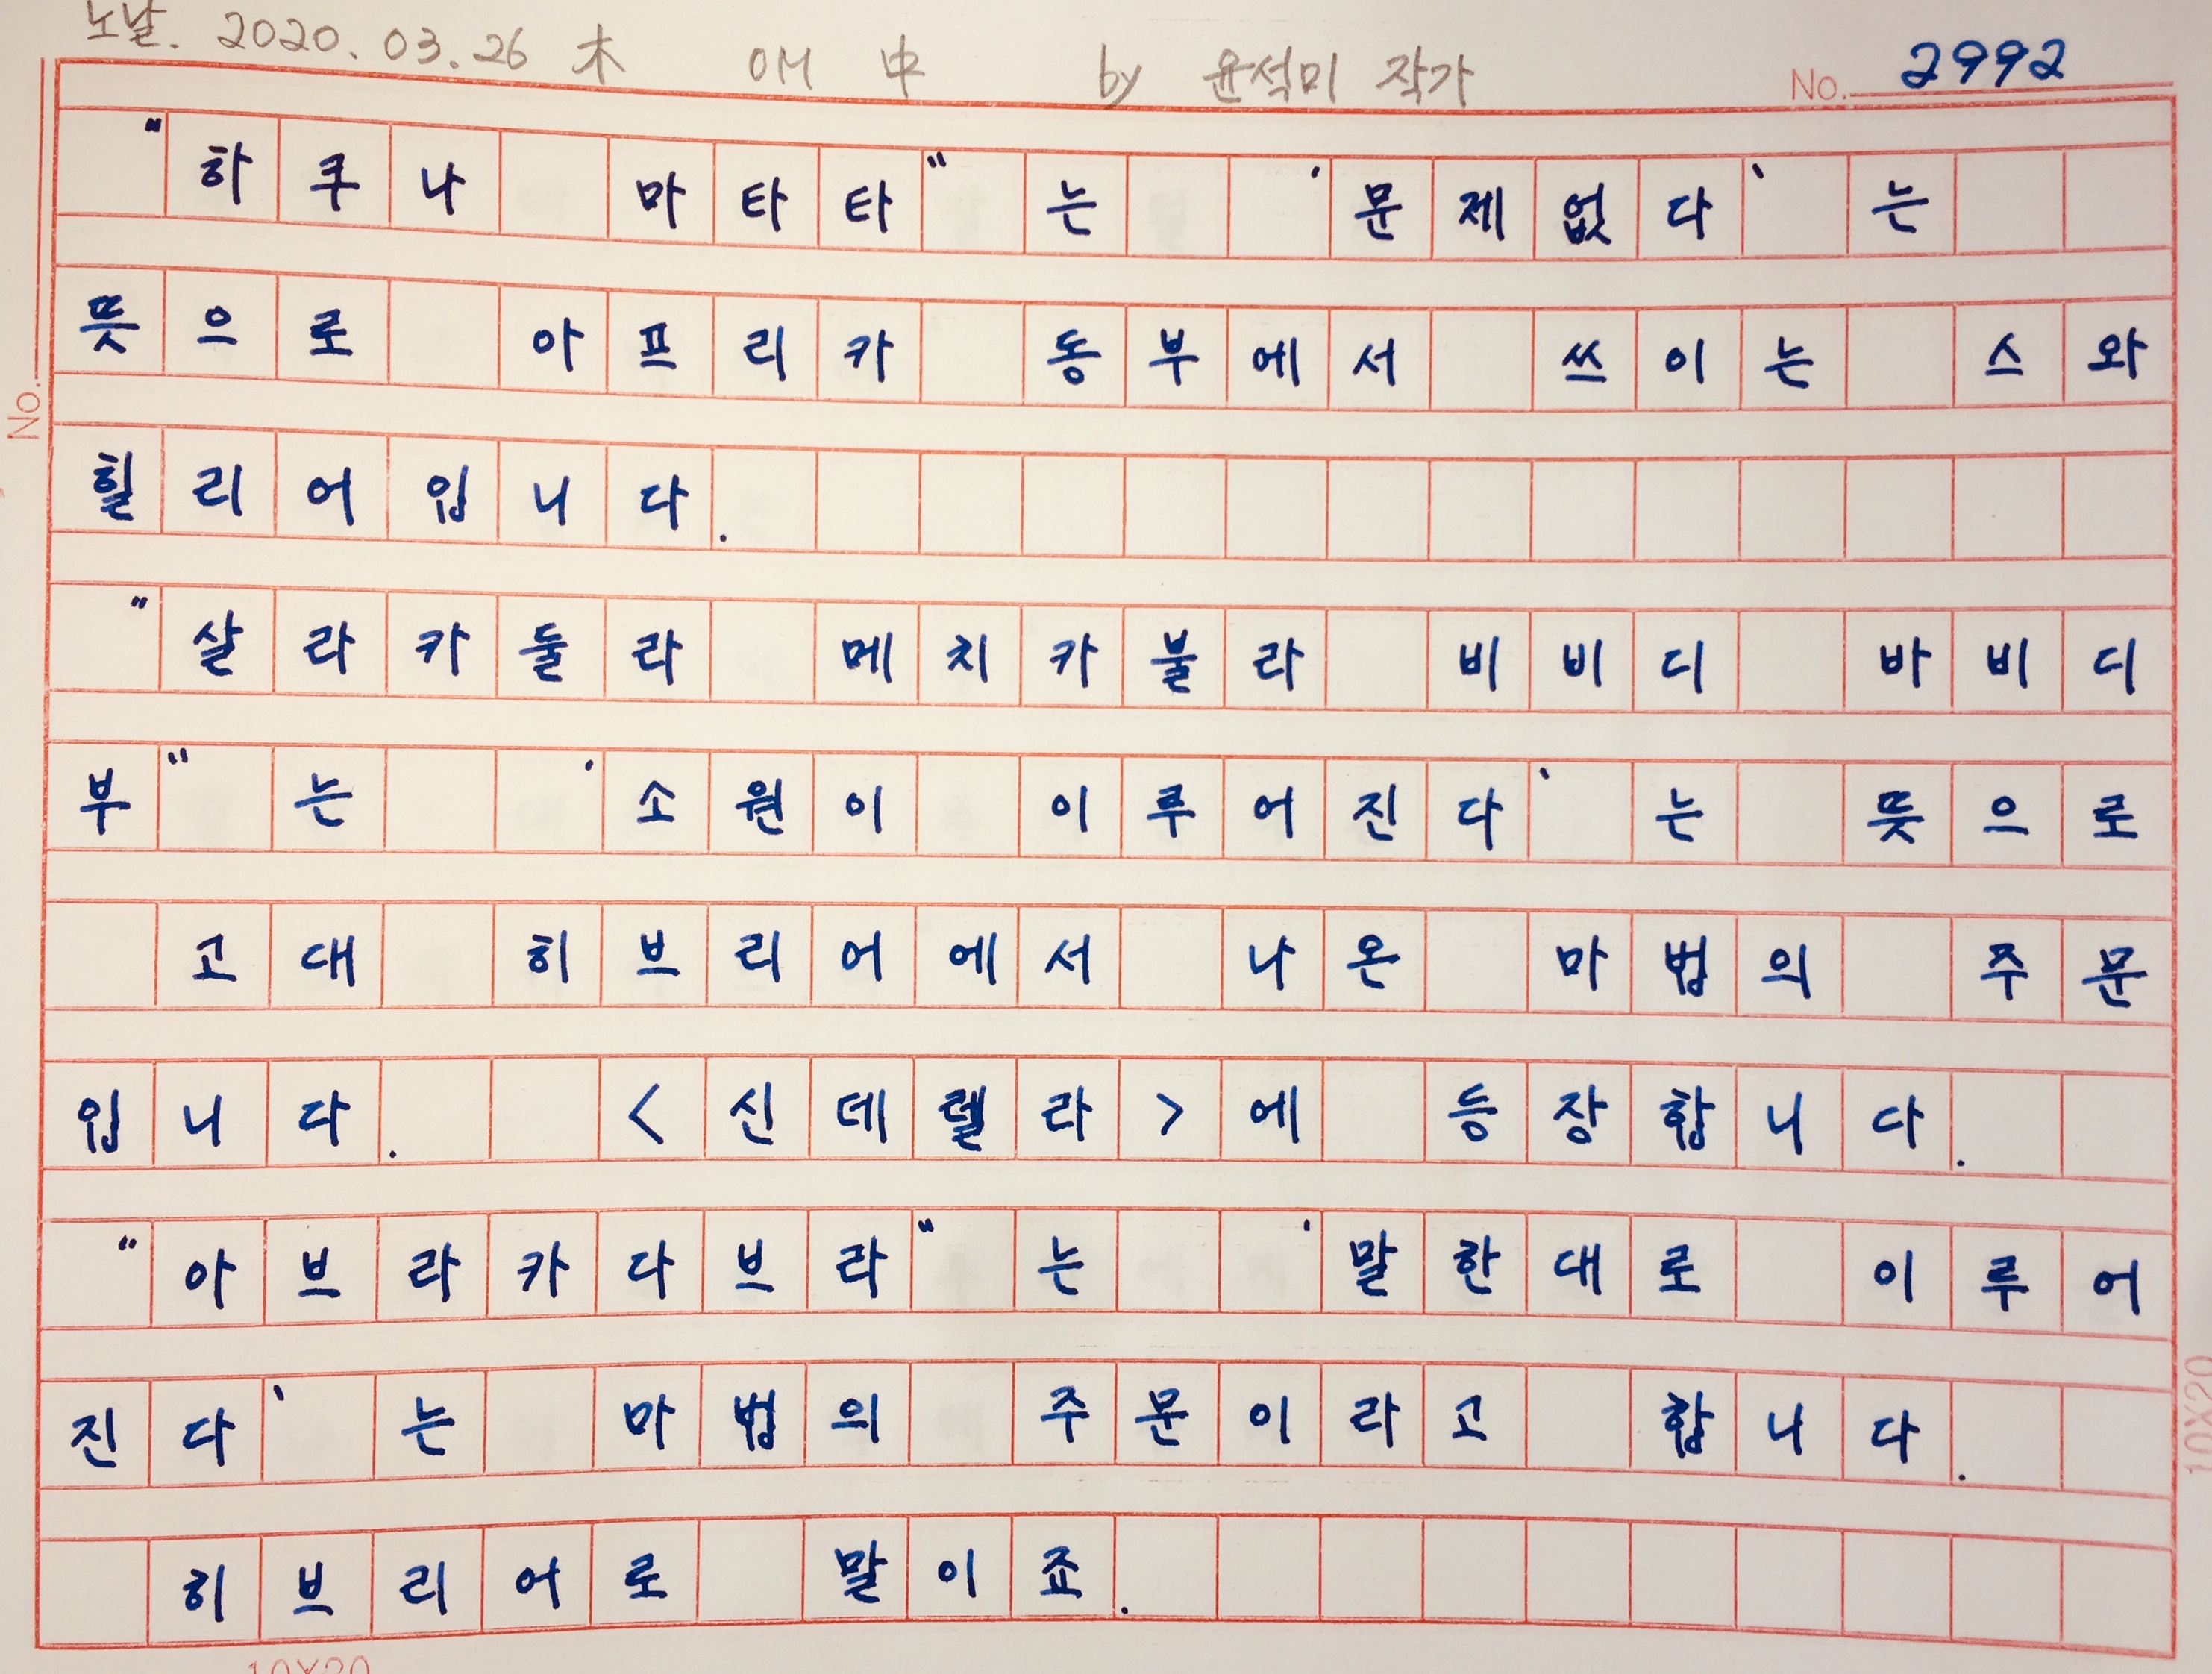 노날. 2020. 03. 26 木 OM 中 by 윤석미 작가 No. 2992
"하쿠나 마타타"는 '문제없다'는
뜻으로 아프리카 동부에서 쓰이는 스와
힐리어입니다.
"살라카둘라 메치카불라 비비디 바비디
부"는 '소원이 이루어진다'는 뜻으로
고대 히브리어에서 나온 마법의 주문
입니다. <신데렐라>에 등장합니다.
"아브라카다브라"는 '말한대로 이루어
진다'는 마법의 주문이라고 합니다.
히브리어로 말이죠.
No.
10X20
10X20